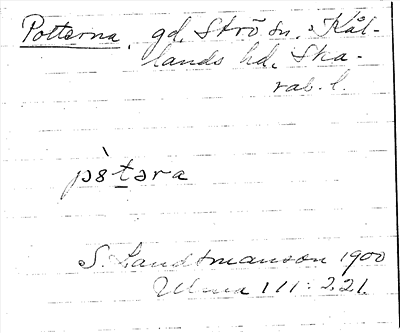 Potterna, gd, Strö sn. Kål-
lands hd. Ska-
rab. l.
pə̀8t̲əra
S. Landtmanson 1900
Ulma 111:221.